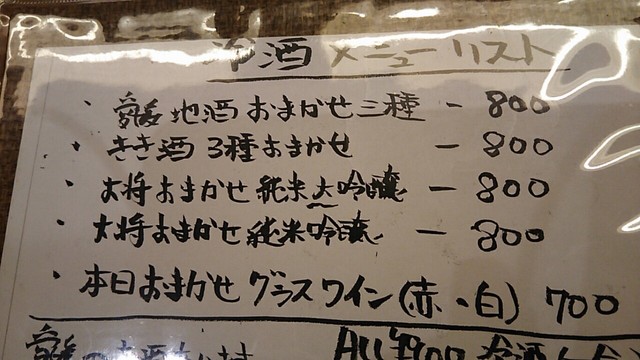 冷酒メニューリスト
・愛媛地酒おまかせ三種 - 800
・きき酒3種おまかせ - 800
・大将おまかせ純米大吟醸 - 800
・大将おまかせ純米吟醸 - 800
・本日おまかせグラスワイン(赤・白) 700
愛媛